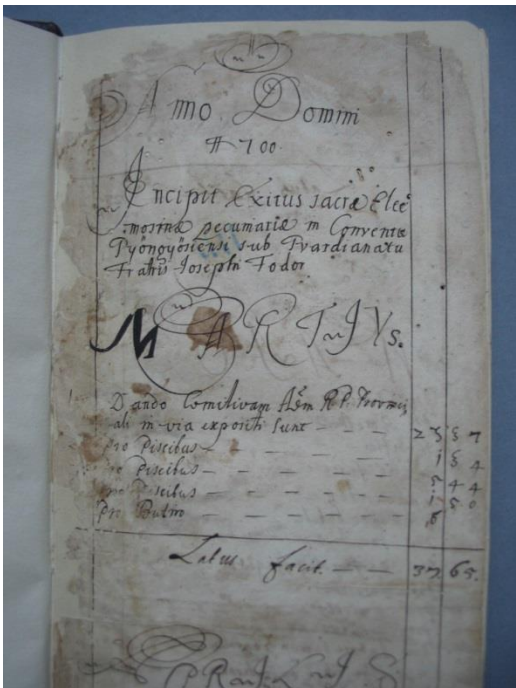 Anno Domini
1700.
Incipit Exitus sacræ Elee
mosinæ pecuniariæ in Conventu
Gyöngyösiensi sub Gvardianatu
Fratris Josephi Fodor
MARTIYs.
Dando Comitivam Adm R. P. Provinci
ali in via expositi sunt — — 23 57
pro Piscibus — — — — — 1 5
pro Piscibus — — — — — 4
pro Piscibus — — — — — 4 4
pro — — — — — 50
Latus facit. — — 37 65.
APRILIS